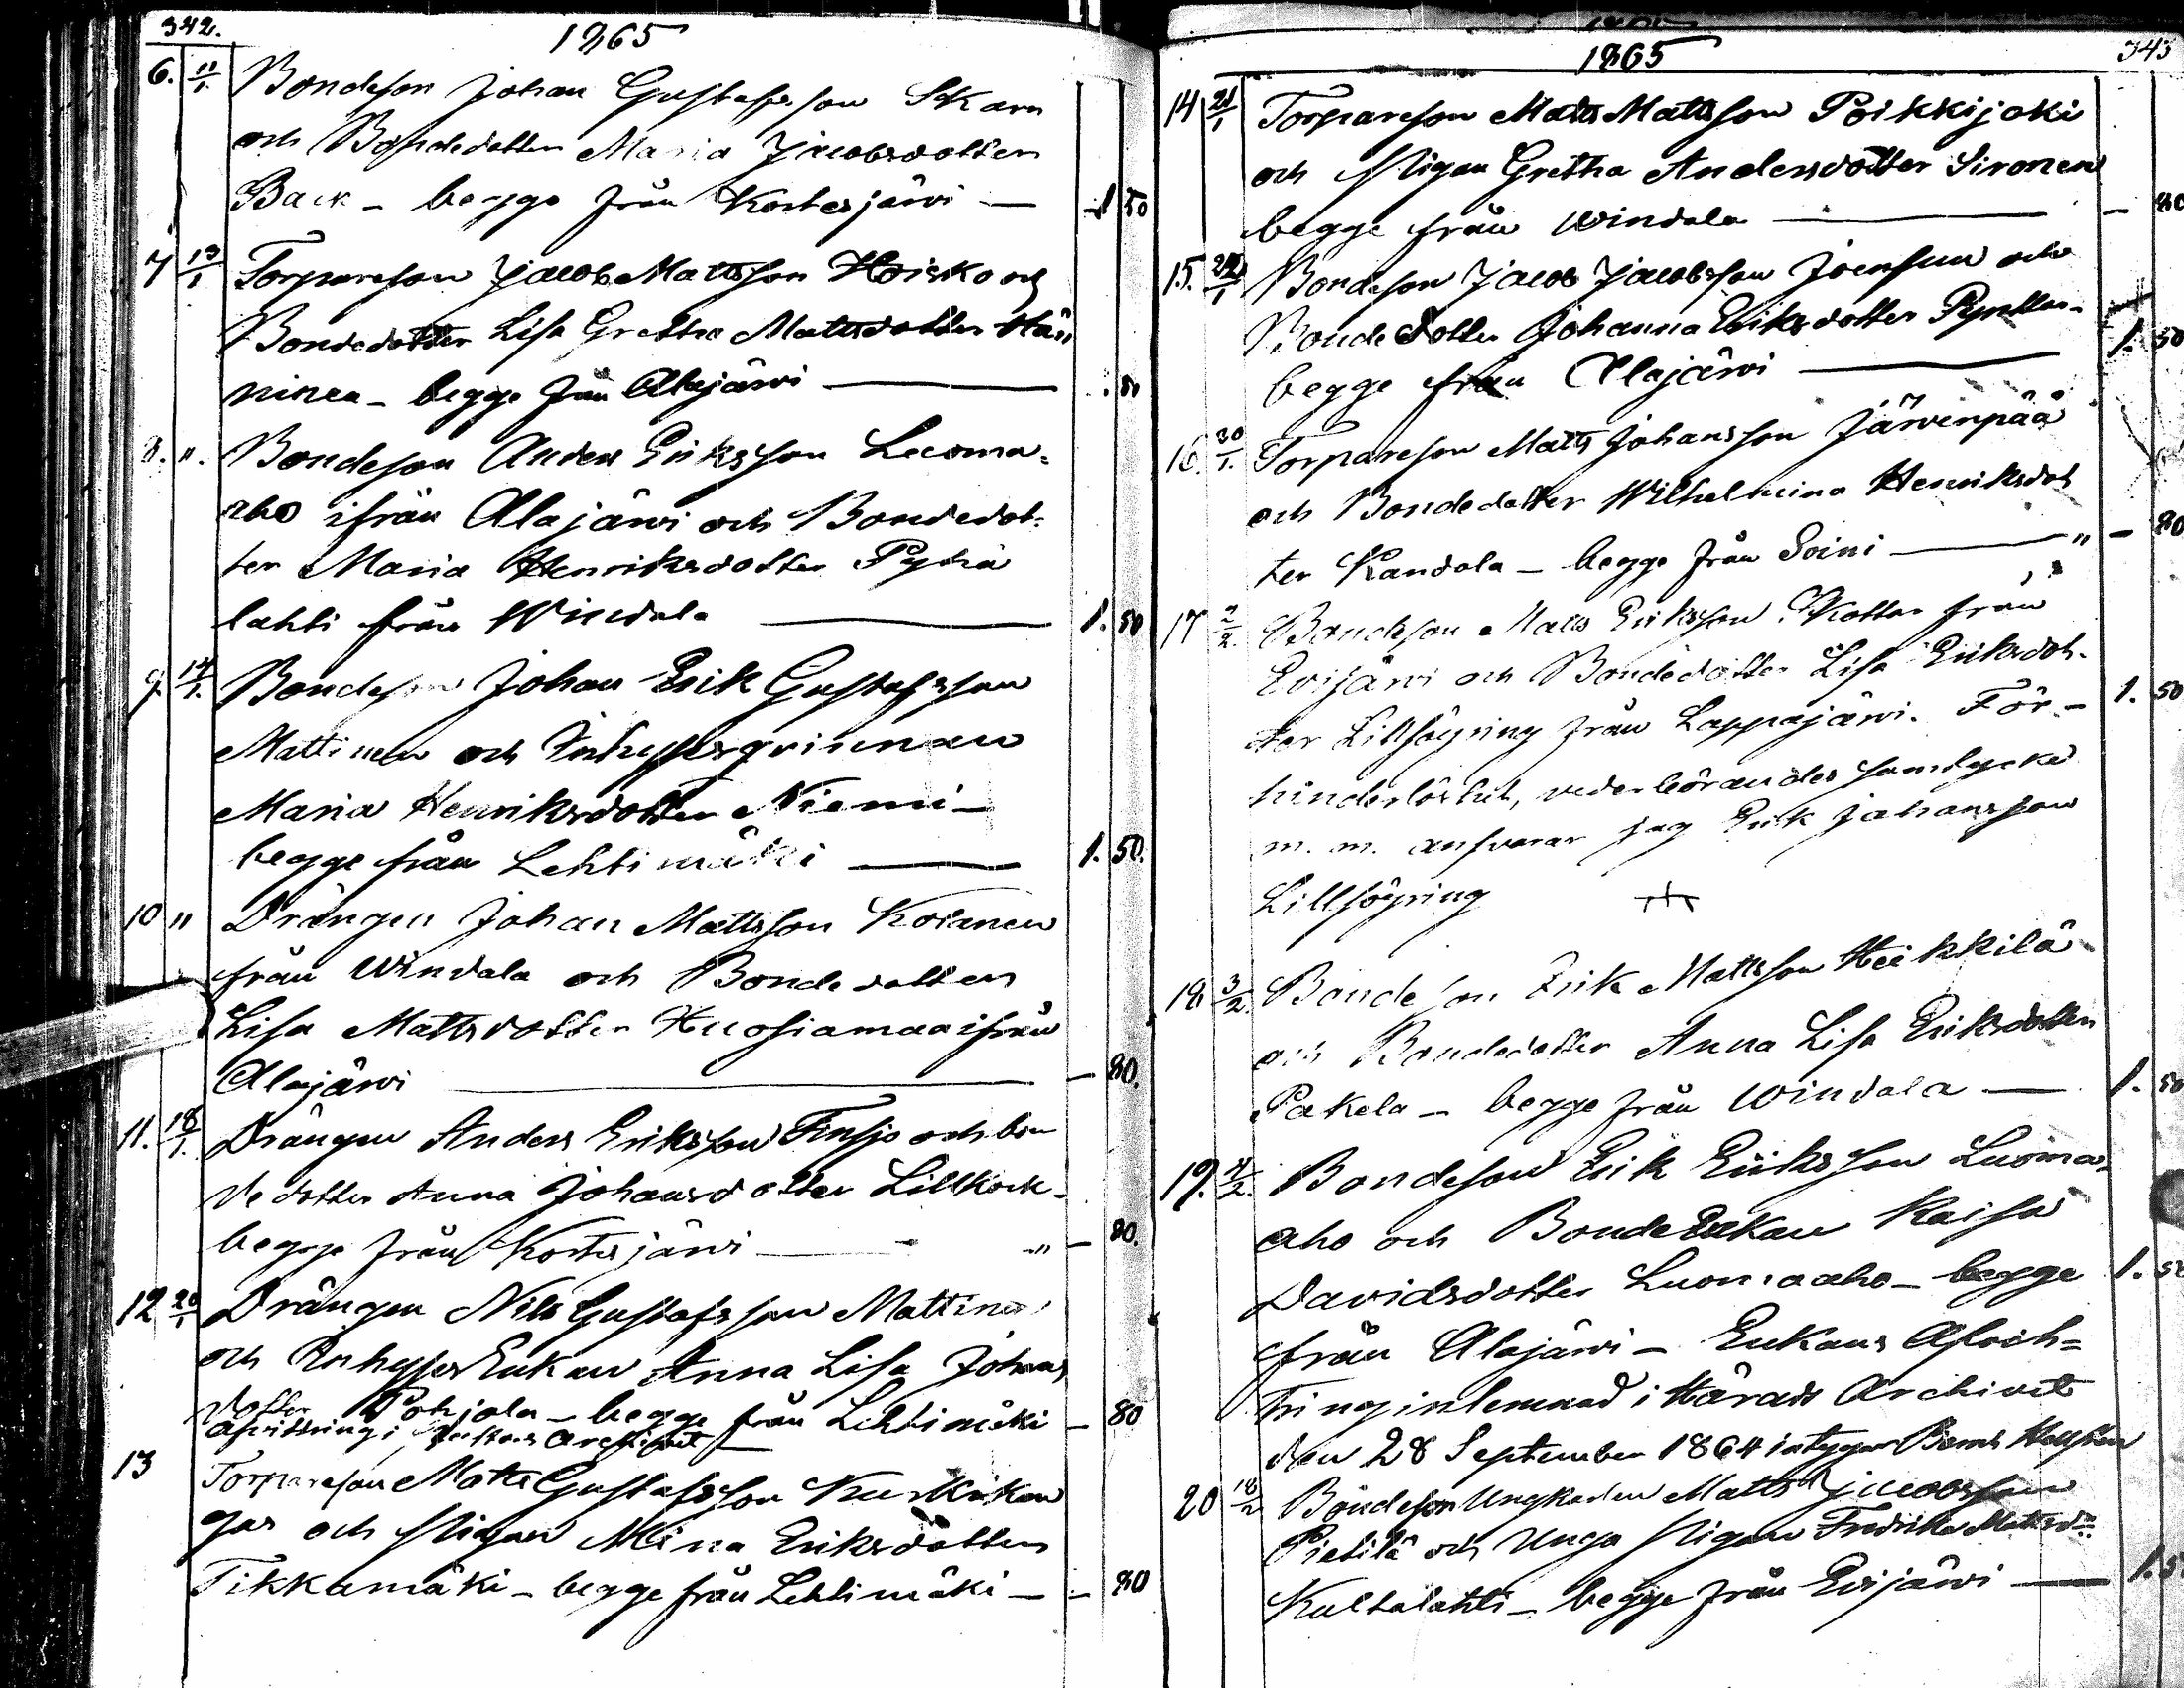 342.
1865
6. 11/1. Bondeson Johan Gustafsson Skarn
och Bondedotter Maria Jacobsdotter
Back - begge från Kortesjärwi — 1 50
7 13/1 Torpareson Jacob Mattsson Hoisko och
Bondedotter Lisa Gretha Mattsdotter Hän
ninen - begge från Alajärwi — . 80
8. ". Bondeson Anders Eriksson Luoma=
aho ifrån Alajärwi och Bondedot=
ter Maria Henriksdotter Pyhä
lahti från Windala — 1. 50
9. 14/1. Bondeson Johan Erik Gustafsson
Mattinen och Inhysesqvinnan
Maria Henriksdotter Niemi -
begge från Lehtimäki — 1. 50.
10 " Drängen Johan Mattsson Kosanen
från Windala och Bondedotter
Lisa Mattsdotter Huosiamaa ifrån
Alajärwi — - 80.
11. 18/1. Drängen Anders Eriksson Finsjo och bon
dedotter Anna Johansdotter Lillkock -
begge från Kortesjärwi — " - 80.
12 20/1 Drängen Nils Gustafsson Mattinen
och Inhyses Enkan Anna Lisa Johans
dotter Pohjola - begge från Lehtimäki - 80
afvittring i archivet
13 Torpareson Matts Gustafsson Kurkikan
gas och Pigan Mina Eriksdotter
Tikkamäki - begge från Lehtimäki — - 80
1865
343
14 21/1 Torpareson Matts Mattsson Poikkijoki
och Pigan Gretha Andersdotter Sironen
begge från Windala — - 80
15. Bondeson Jacob Jacobsson Joensuu och
Bondedotter Johanna Eriksdotter -
begge från Alajärwi — 1. 50
16. 30/1. Torpareson Matts Johansson Järwenpää
och Bondedotter Wilhelmina Henriksdot
ter Kandola - begge från Soini — " - 80
17 2/2. Bondeson Matts Eriksson Kottar från
Evijärvi och Bondedotter Lisa Eriksdot-
ter Lillsöyring från Lappajärwi. För- 1. 50
hinderlöshet, vederbörandes samtycke
m. m. ansvarar jag Erik Johansson
Lillsöyring
18 3/2. Bondeson Erik Mattsson Heikkilä
och Bondedotter Anna Lisa Eriksdotter
Pakela - begge från Windala — 1. 50
19. 4/2. Bondeson Erik Eriksson Luoma=
aho och Bonde Enkan Kaisa
Davidsdotter Luomaaho - begge 1. 50
från Alajärwi - Enkans Afvit=
tring inlemnad i Härads Archivet
den 28 September 1864 intygar
20 18/2 Bondeson Ungkarlen Matts Jacobsson
Pietilä och Unga Pigan Fredrika Mattsdr
Kultalahti - begge från Evijärwi — 1. 5